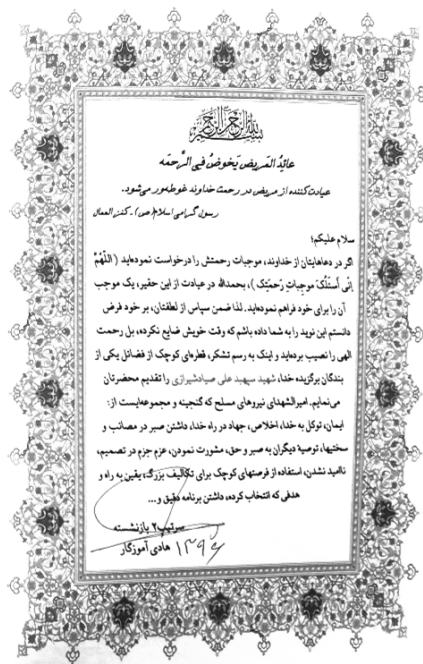 بسم الله الرحمن الرحیم
عائِدُ المَریض یَخوضُ فِی الرَّحمَه
عیادت‌کننده از مریض در رحمت خداوند غوطه‌ور می‌شود.
رسول گرامی اسلام(ص)-کنز العمال
سلام علیکم؛
اگر در دعاهایتان از خداوند، موجبات رحمتش را درخواست نموده‌اید ( اللّهُمَّ
إنّی أسئَلُکَ موجباتِ رَحمَتِکَ )، بحمدالله در عیادت از این حقیر، یک موجب
آن را برای خود فراهم نموده‌اید. لذا ضمن سپاس از لطفتان، بر خود فرض
دانستم این نوید را به شما داده باشم که وقت خویش ضایع نکرده، بل رحمت
الهی را نصیب برده‌اید و اینک به رسم تشکر، قطره‌ای کوچک از فضائل یکی از
بندگان برگزیده خدا، شهید سپهبد علی صیادشیرازی را تقدیم محضرتان
می‌نمایم. امیرالشهدای نیروهای مسلح که گنجینه و مجموعه‌ایست از:
ایمان، توکل به خدا، اخلاص، جهاد در راه خدا، داشتن صبر در مصائب و
سختیها، توصیهٔ دیگران به صبر و حق، مشورت نمودن، عزم جزم در تصمیم،
ناامید نشدن، استفاده از فرصتهای کوچک برای تکالیف بزرگ، یقین به راه و
هدفی که انتخاب کرده، داشتن برنامه دقیق و...
سرتیپ۲ بازنشسته
هادی آموزگار
۱۳۹۶